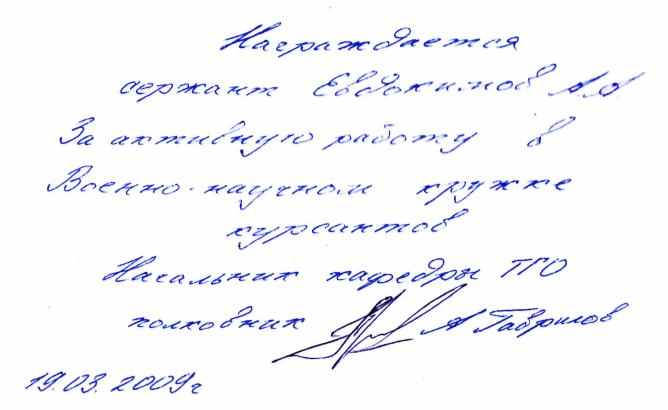 Награждается
сержант Евдокимов А.А
За активную работу в
Военно-научном кружке
курсантов
Начальник кафедры ТГО
полковник А Гаврилов
19.03.2009г